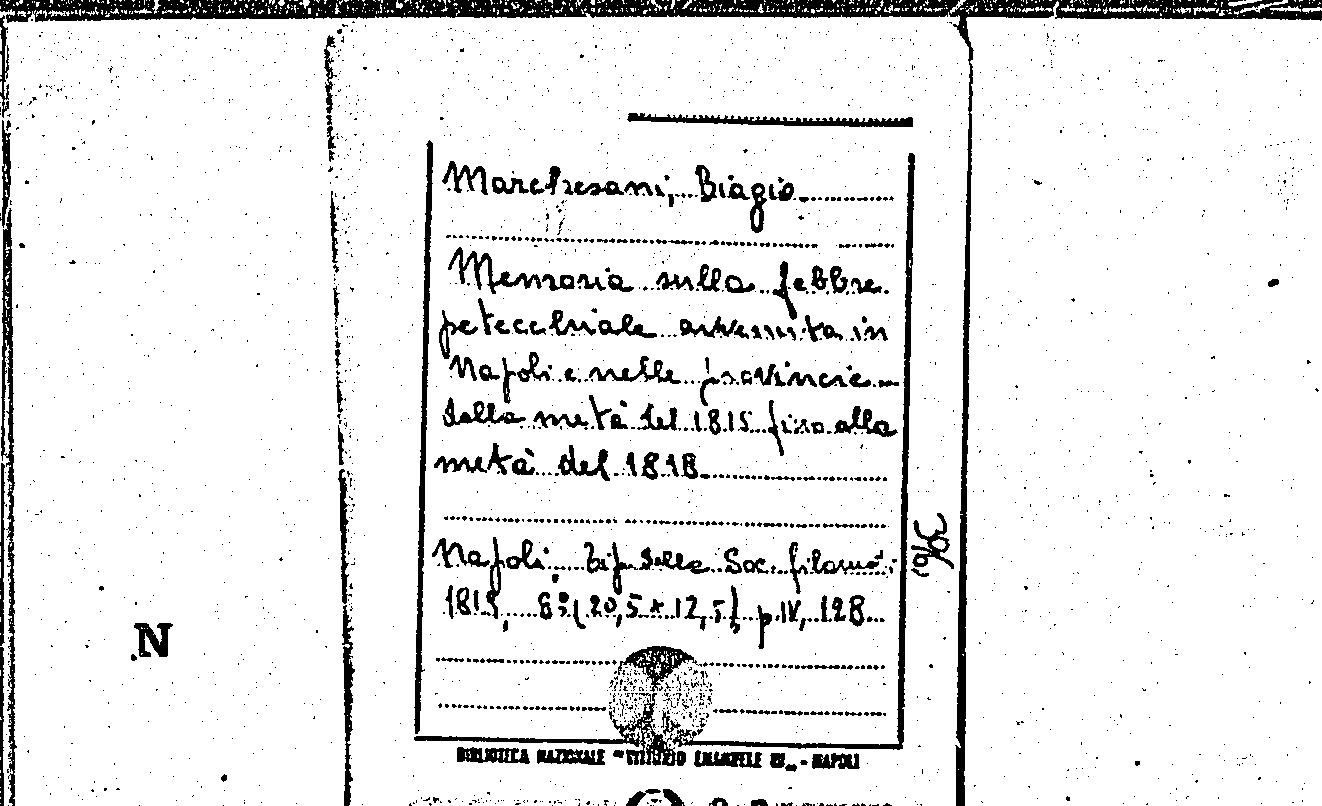 Marchesani, Biagio.
Memoria sulla febbre
petecchiale avvenuta in
Napoli e nelle provincie
dalla metà del 1815 fino alla
metà del 1818.
Napoli, Tip. della Soc. filomat.
1819, 8° (20,5 x 12,5), p. IV, 128
BIBLIOTECA NAZIONALE "VITTORIO EMANUELE III" - NAPOLI
N